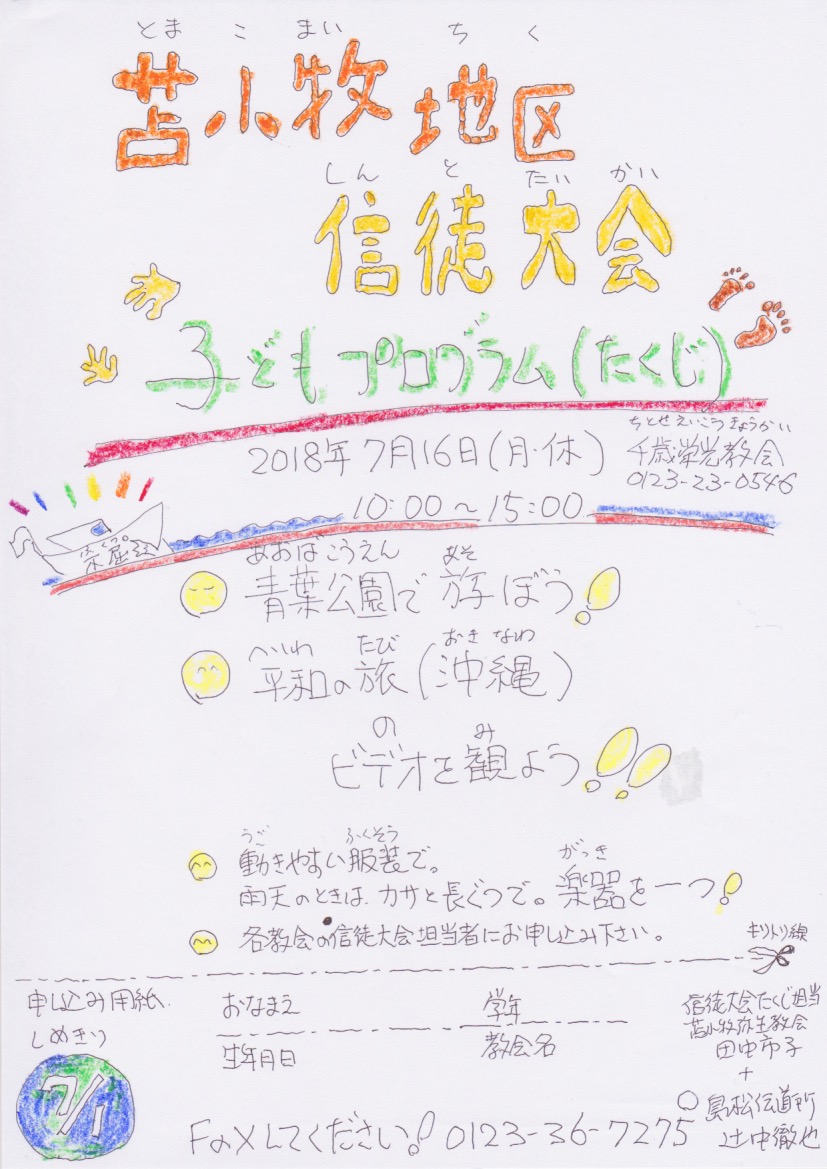 とまこまい ちく
苫小牧地区
しんと たいかい
信徒大会
子どもプログラム(たくじ)
2018年7月16日(月・休)
10:00~15:00
ちとせえいこうきょうかい
千歳栄光教会
0123-23-0546
あおばこうえん あそ
青葉公園で遊ぼう!
へいわ たび おきなわ
平和の旅(沖縄)
の み
ビデオを観よう!!
うご ふくそう
動きやすい服装で。
がっき
雨天のときは、カサと長ぐつで。楽器を一つ!
各教会の信徒大会担当者にお申し込み下さい。
キリトリ線
申し込み用紙
しめきり
7/1
おなまえ 学年
生年月日 教会名
信徒大会たくじ担当
苫小牧弥生教会
田中市子
+
○島松伝道所
辻中徹也
FaXしてください!0123-36-7275